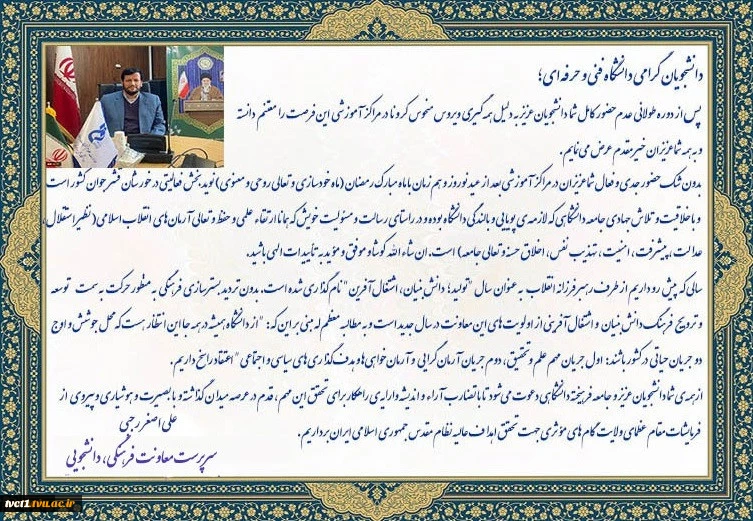 دانشجویان گرامی دانشگاه فنی و حرفه ای؛
پس از دوره طولانی عدم حضور کامل شما دانشجویان عزیز به دلیل همه گیری ویروس منحوس کرونا در مراکز آموزشی این فرصت را مغتنم دانسته
و به همه شما عزیزان خیر مقدم عرض می نمایم.
بدون شک حضور جدی و فعال شما عزیزان در مراکز آموزشی بعد از عید نوروز و هم زمان با ماه مبارک رمضان (ماه خودسازی و تعالی روحی و معنوی) نوید بخش فعالیتی در خور شان قشر جوان کشور است
و با خلاقیت و تلاش جهادی جامعه دانشگاهی که لازمه ی پویایی و بالندگی دانشگاه بوده و در راستای رسالت و مسئولیت خویش که همانا ارتقاء علمی و حفظ و تعالی آرمان های انقلاب اسلامی (نظیر استقلال،
عدالت، پیشرفت، امنیت، تهذیب نفس، اخلاق حسنه و تعالی جامعه) است. ان شاء الله کوشا و موفق و مؤید به تأییدات الهی باشید.
سالی که پیش رو داریم از طرف رهبر فرزانه انقلاب به عنوان سال "تولید؛ دانش بنیان، اشتغال آفرین" نام گذاری شده است. بدون تردید بسترسازی فرهنگی به منظور حرکت به سمت توسعه
و ترویج فرهنگ دانش بنیان و اشتغال آفرینی از اولویت های این معاونت در سال جدید است و به مطالبه معظم له مبنی بر این که: "از دانشگاه همیشه در همه جا این انتظار هست که محل جوشش و اوج
دو جریان حیاتی در کشور باشند: اول جریان مهم علم و تحقیق، دوم جریان آرمان گرایی و آرمان خواهی ها و هدف گذاری های سیاسی و اجتماعی" اعتقاد راسخ داریم.
از همه ی شما دانشجویان عزیز و جامعه فرهیخته دانشگاهی دعوت می شود تا با تضارب آراء و اندیشه و ارایه ی راهکار برای تحقق این مهم، قدم در عرصه میدان گذاشته و با بصیرت و هوشیاری و پیروی از
فرمایشات مقام عظمای ولایت گام های مؤثری جهت تحقق اهداف عالیه نظام مقدس جمهوری اسلامی ایران برداریم.
علی اصغر رجبی
سرپرست معاونت فرهنگی، دانشجویی
tvct1.tvu.ac.ir